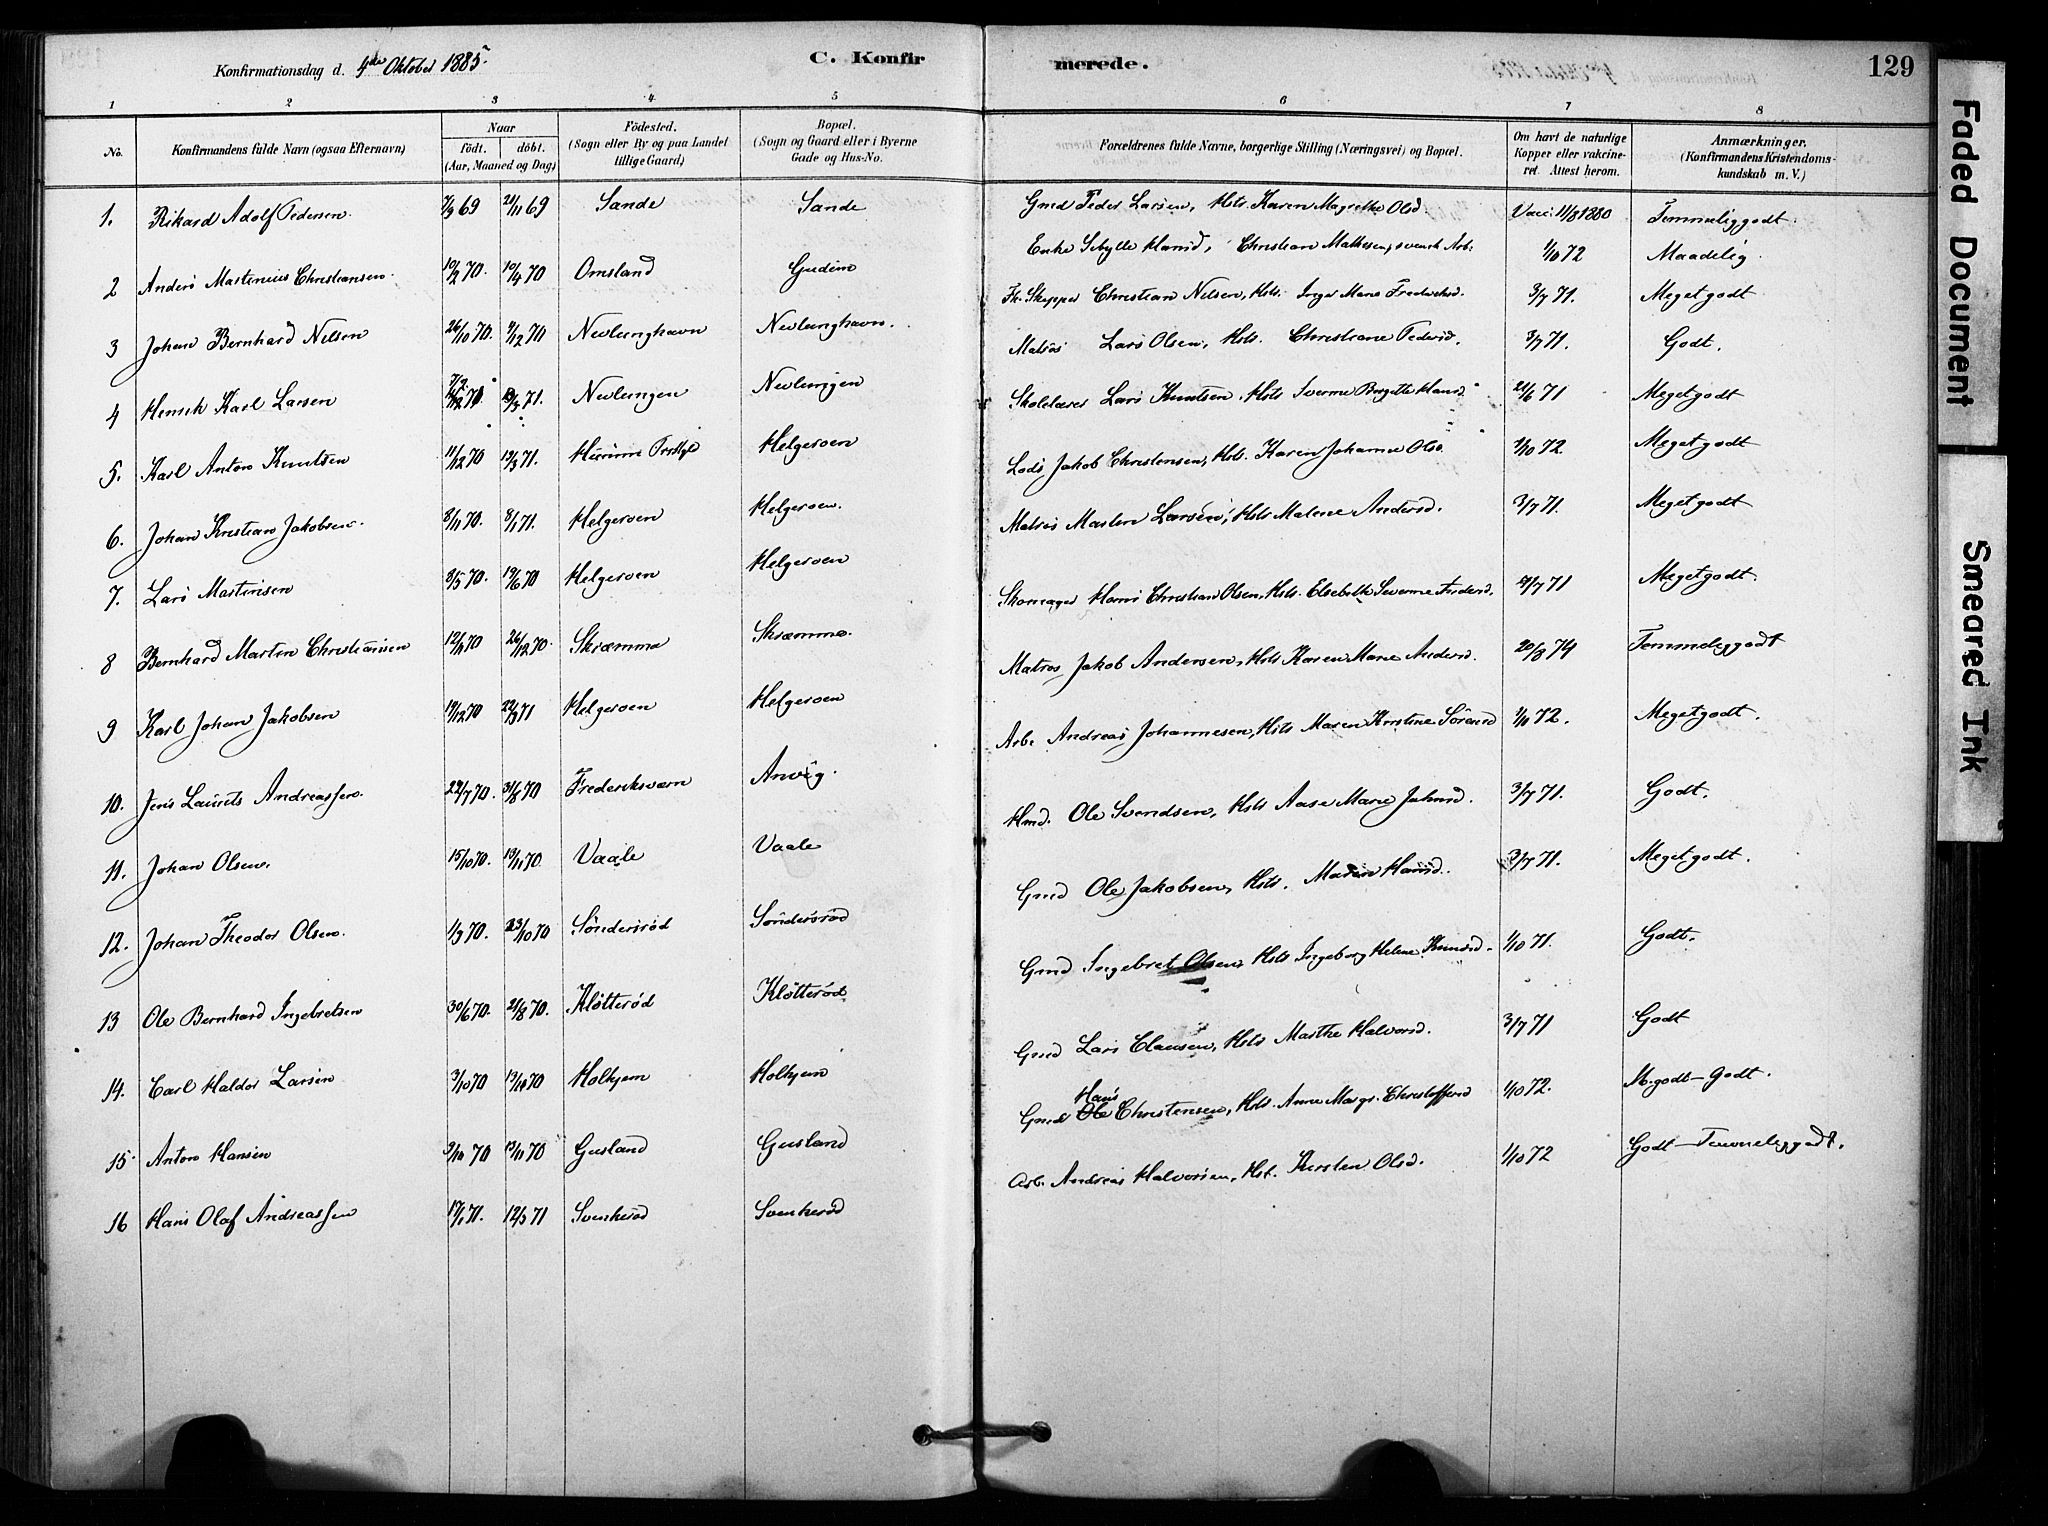 Konfirmationsdag d. 4de Oktober 1885.
C. Konfirmerede.
129
1 2 3 4 5 6 7 8
No.
Konfirmandens fulde Navn (ogsaa Efternavn)
Naar
födt. döbt.
(Aar, Maaned og Dag)
Födested.
(Sogn eller By og paa Landet
tillige Gaard)
Bopæl.
(Sogn og Gaard eller i Byerne
Gade og Hus-No.
Forældrenes fulde Navne, borgerlige Stilling (Næringsvei) og Bopæl.
Om havt de naturlige
Kopper eller vakcine-
ret. Attest herom.
Anmærkninger.
(Konfirmandens Kristendoms-
kundskab m. V.)
1. Rikard Adolf Pedersen 7/9 69 21/11 69 Sande Sande Gmd Peder Larsen, Hstr. Karen Magrethe Olsd. Vacc. 11/8 1880 Temmeliggodt
2 Anders Martinius Christiansen 10/2 70. 10/4 70 Omsland Gudim Enke Sibylle Hansd, Christian Mathesen, svensk Arb. 1/10 72 Maadelig
3 Johan Bernhard Nilsen 26/10 70. 9/12 70 Nevlunghavn Nevlunghavn. Fh. Skipper Christian Nilsen, Hstr. Inger Marie Frederiksd. 3/7 71. Megetgodt
4 Henrik Karl Larsen 71. Nevlungen Nevlungen Matros Lars Olsen, Hstr. Christiane Pedersd. 3/7 71. Godt.
5. Karl Anton Knutsen 11/12 70 19/3 71. Helgeroen Skolelærer Lars Knutsen, Hstr Severine Birgitte Hansd 21/6 71 Megetgodt
6. Johan Kristian Jakobsen. 8/11 70. 8/1 71. Helgeroen Helgeroen. Lods Jakob Christensen, Hstr. Karen Johanne Olsd 1/10 72. Megetgodt
7. Lars Martinsen 8/5 70. 19/6 70 Helgeroen Helgeroen Matros Martin Larsen, Hstr Malene Andersd. 3/7 71. Megetgodt
8 Bernhard Martin Christiansen 12/11 70 26/12 70. Skræmma Skræmma. Skomager Hans Christian Olsen, Hstr. Elsebethe Severine 71 Megetgodt.
9 Karl Johan Jakobsen 19/12 70 22/3 71 Helgeroen Helgeroen Matros Jakob Andersen, Hstr Karen Marie Andersd. 20/8 74 Temmeliggodt
10. Jens Laurits Andreassen 29/7 70. 31/8 70 Frederiksværn Anvig. Arb. Andreas Johannesen, Hstr Maren Kirstine Sörensd 72. Megetgodt.
11. Johan Olsen. 15/10 70. 13/11 70. Vaale Vaale Hmd. Ole Svendsen, Hstr Aase Marie Jahnsd. 3/7 71. Godt.
12. Johan Theodor Olsen. 1/9 70. 23/10 70 Söndersröd Söndersröd Gmd Ole Jakobsen, Hstr. Maren Hansd. 3/7 71. Megetgodt.
13 Ole Bernhard Ingebretsen 30/6 70. 21/8 70. Klötteröd Klötteröd Gmd Ingebret Olsen, Hstr Ingeborg Helene 1/10 71. Godt.
14. Carl Haldor Larsen 3/10 70 70 Holhjem Holhjem Gmd Lars Clausen, Hstr Marthe Halvorsd. 3/7 71 Godt
15 Anton Hansen 70 13/11 70 Gusland Gusland Gmd Ole Hans Christensen, Hstr. Anne Margr. Christoffersd 1/10 72. M.godt – Godt.
16 Hans Olaf Andreassen 17/1 71. 12/3 71 Svenkeröd Svenkeröd Arb. Andreas Halvorsen, Hst. Kirsten Olsd. 1/10 72 Godt – Temmeliggodt.
Faded Document
Smeared Ink